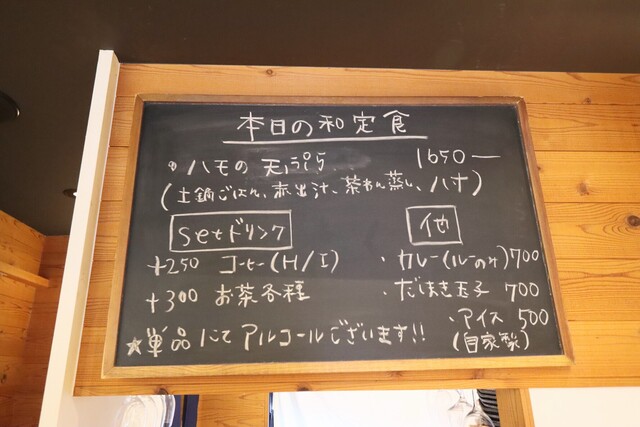 本日の和定食
・ハモの天ぷら 1650ー
(土鍋ごはん、赤出汁、茶わん蒸し、八寸)
Setドリンク
+250 コーヒー(H/I)
+300 お茶各種
他
・カレー(ルーのみ)700
・だしまき玉子 700
・アイス 500
(自家製)
☆単品にてアルコールございます!!